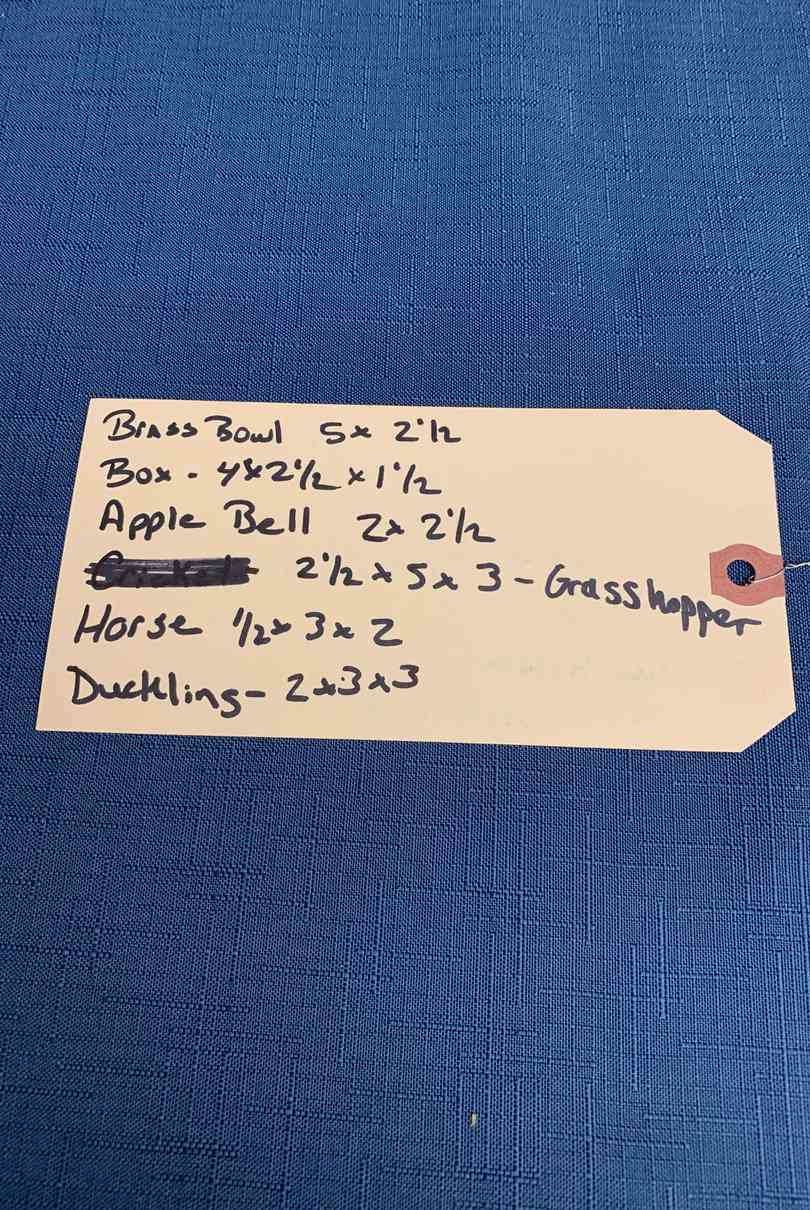 Brass Bowl 5x 2 1/2
Box - 4x2 1/2 x 1 1/2
Apple Bell 2x 2 1/2
2 1/2 x 5 x 3 - Grasshopper
Horse 1/2x 3x 2
Duckling- 2x3x3